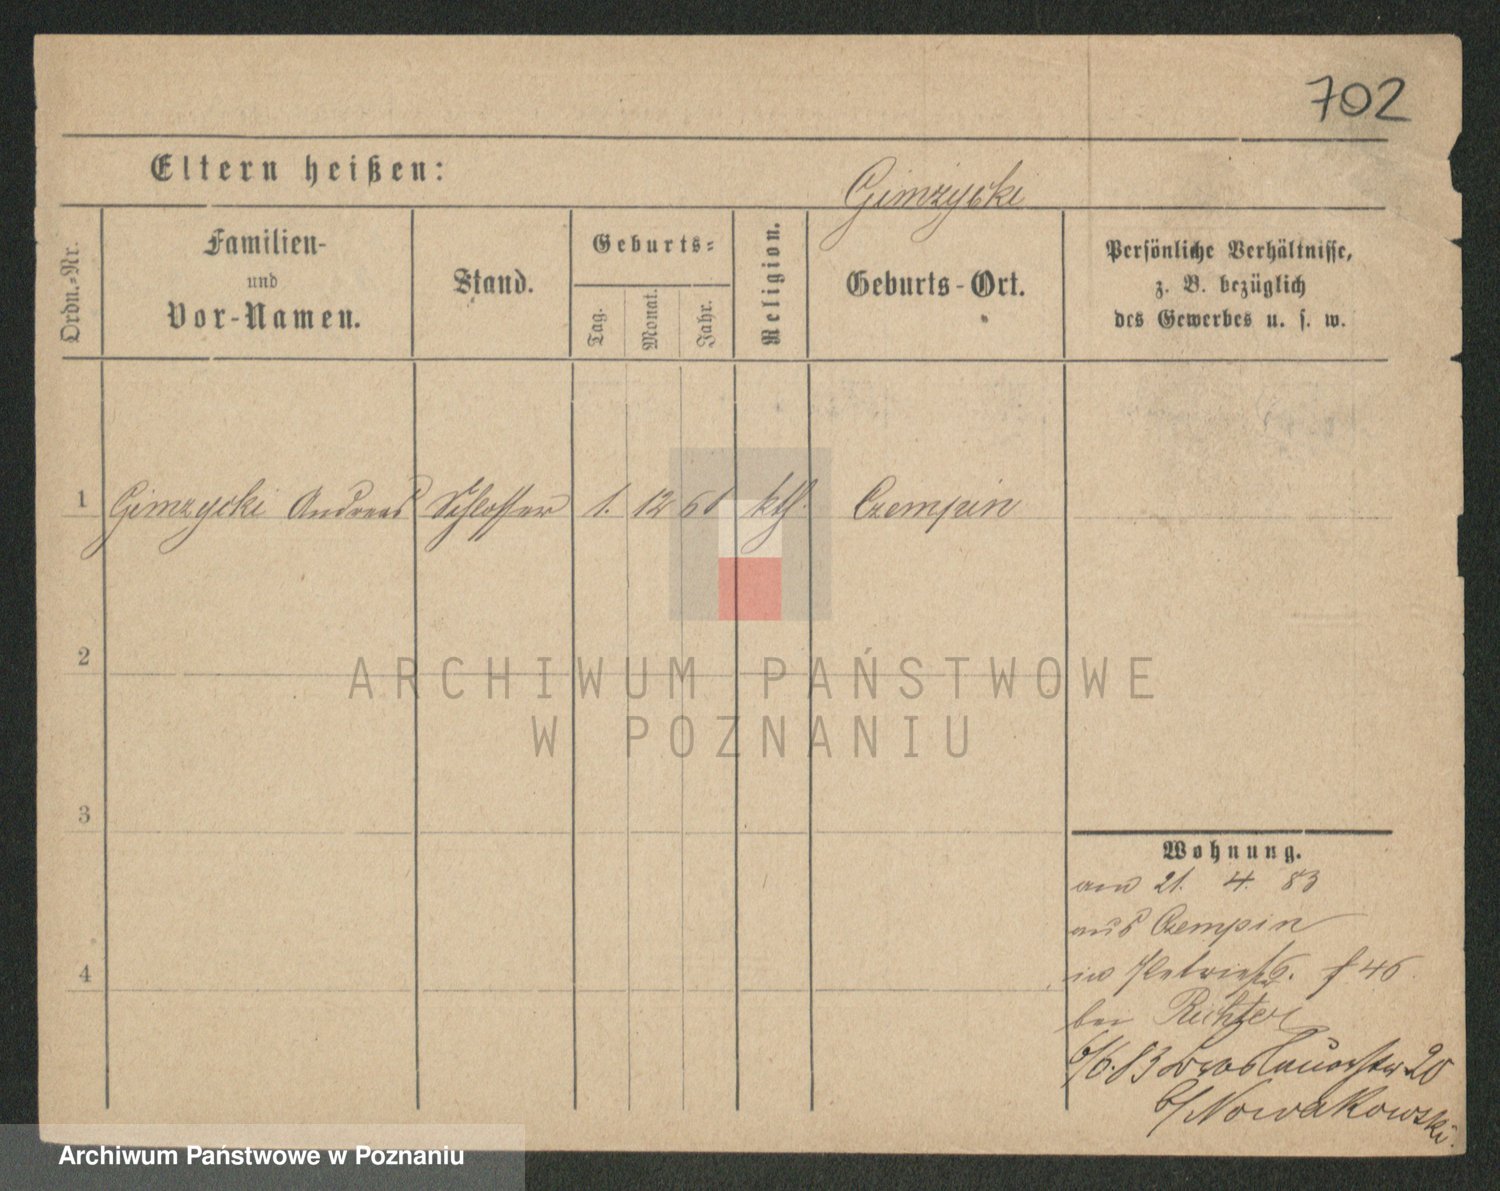 702
Eltern heißen:
Gimzycki
Ordn.-Nr.
Familien-
und
Vor-Namen.
Stand.
Geburts-
Tag.
Monat.
Jahr.
Religion.
Geburts-Ort.
Persönliche Verhältnisse,
z. B. bezüglich
des Gewerbes u. s. w.
1 Gimzycki Andreas Schlosser 1. 12 61 kth. Czempin
2
ARCHIWUM PAŃSTWOWE
W POZNANIU
3
Wohnung.
am 21. 4. 83
aus Czempin
4
in 46
bei Richter
6/6.83 20
b/Nowakowski.
Archiwum Państwowe w Poznaniu